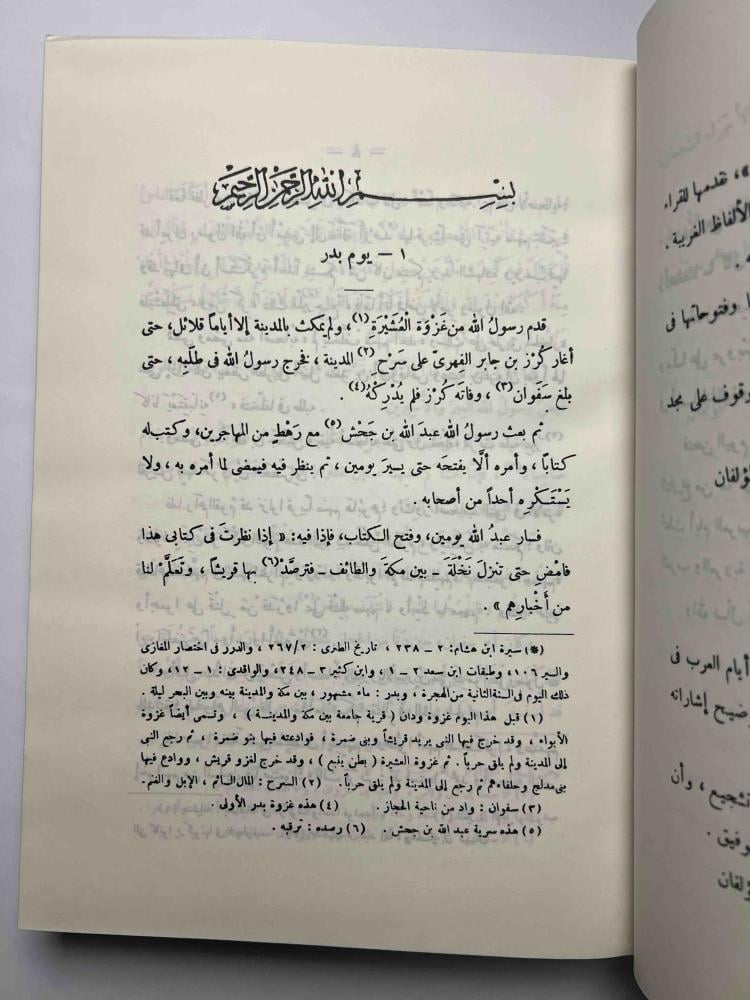 بسم الله الرحمن الرحيم
١ – يوم بدر
قدم رسولُ الله من غَزْوَة الْعُشَيْرَةِ (١)، ولم يمكث بالمدينة إلا أياماً قلائل، حتى
أغار كُرْز بن جابر الفِهرىّ على سَرْح (٢) المدينة، فخرج رسولُ الله فى طلَبِه، حتى
بلغ سَفَوان (٣)، وفاتَه كُرْز فلم يُدْرِكْهُ (٤).
ثم بعث رسولُ الله عبدَ الله بن جَحْش (٥) مع رَهْطٍ من المهاجرين، وكتب له
كتاباً، وأمره ألَّا يفتحَه حتى يسيرَ يومين، ثم ينظر فيه فيمضى لما أمره به، ولا
يَسْتَكْرِه أحداً من أصحابه.
فسار عبدُ الله يومين، وفتح الكتاب، فإذا فيه: « إذا نظرتَ فى كتابى هذا
فامْضِ حتى تنزلَ نَخْلَةَ – بين مكةَ والطائف – فترصَّدْ (٦) بها قريشًا، وتَعلَّمْ لنا
من أَخْبارِهم ».
(*) سيرة ابن هشام: ٢ – ٢٣٨، تاريخ الطبرى: ٢/٢٦٧، والدرر فى اختصار المغازى
والسير ١٠٦، وطبقات ابن سعد ٢ – ١، وابن كثير ٣ – ٢٤٨، والواقدى: ١ – ١٢، وكان
ذلك اليوم فى السنة الثانية من الهجرة، وبدر: ماء مشهور، بين مكة والمدينة بينه وبين البحر ليلة.
(١) قبل هذا اليوم غزوة ودان ( قرية جامعة بين مكة والمدينة )، وتسمى أيضاً غزوة
الأبواء، وقد خرج فيها النبى يريد قريشاً وبنى ضمرة، فوادعته فيها بنو ضمرة، ثم رجع النبى
إلى المدينة ولم يلق حرباً. ثم غزوة العشيرة ( بطن ينبع )، وقد خرج لغزو قريش، ووادع فيها
بنى مدلج وحلفاءهم ثم رجع إلى المدينة ولم يلق حرباً. (٢) السرح: المال السائم، الإبل والغنم.
(٣) سفوان: واد من ناحية الحجاز. (٤) هذه غزوة بدر الأولى.
(٥) هذه سرية عبد الله بن جحش. (٦) رصده: ترقبه.
»، نقدمها للقراء
الألفاظ الغريبة.
وفتوحاتها فى
وقوف على مجد
أيام العرب فى
وضيح إشاراته
تشجيع، وأن